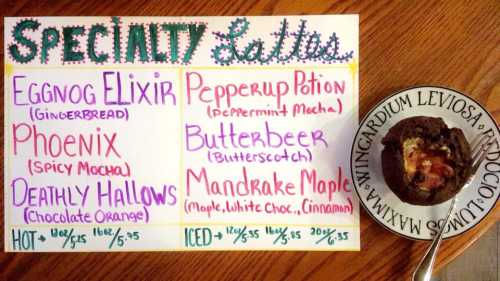 Specialty Lattes
Eggnog Elixir
(Gingerbread)
Phoenix
(Spicy Mocha)
Deathly Hallows
(Chocolate Orange)
Pepperup Potion
(Peppermint Mocha)
Butterbeer
(Butterscotch)
Mandrake Maple
(Maple, White Choc., Cinnamon)
HOT → 12oz/5.25 16oz/5.75
ICED → 12oz/5.35 16oz/5.85 20oz/6.35
WINGARDIUM LEVIOSA
LUMOS MAXIMA